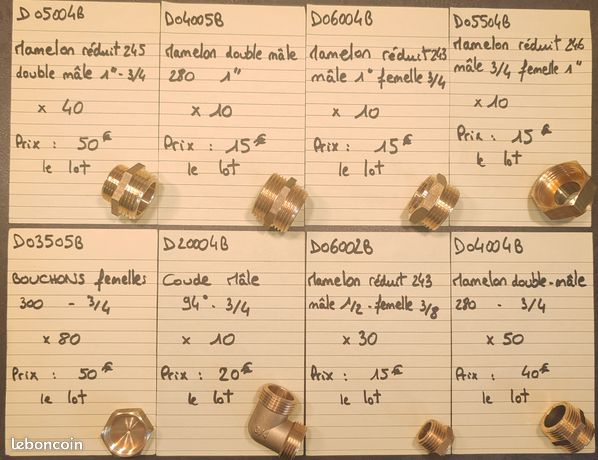 D05004B
Mamelon réduit 245
double mâle 1" - 3/4
x 40
Prix : 50€
le lot
D04005B
Mamelon double mâle
280 1"
x 10
Prix : 15€
le lot
D06004B
Mamelon réduit 243
mâle 1" femelle 3/4
x 10
Prix : 15€
le lot
D05504B
Mamelon réduit 246
mâle 3/4 femelle 1"
x 10
Prix : 15€
le lot
D03505B
BOUCHONS femelles
300 - 3/4
x 80
Prix : 50€
le lot
D20004B
Coude Mâle
94° - 3/4
x 10
Prix : 20€
le lot
D06002B
Mamelon réduit 243
mâle 1/2 - femelle 3/8
x 30
Prix : 15€
le lot
D04004B
Mamelon double-mâle
280 - 3/4
x 50
Prix : 40€
le lot
leboncoin